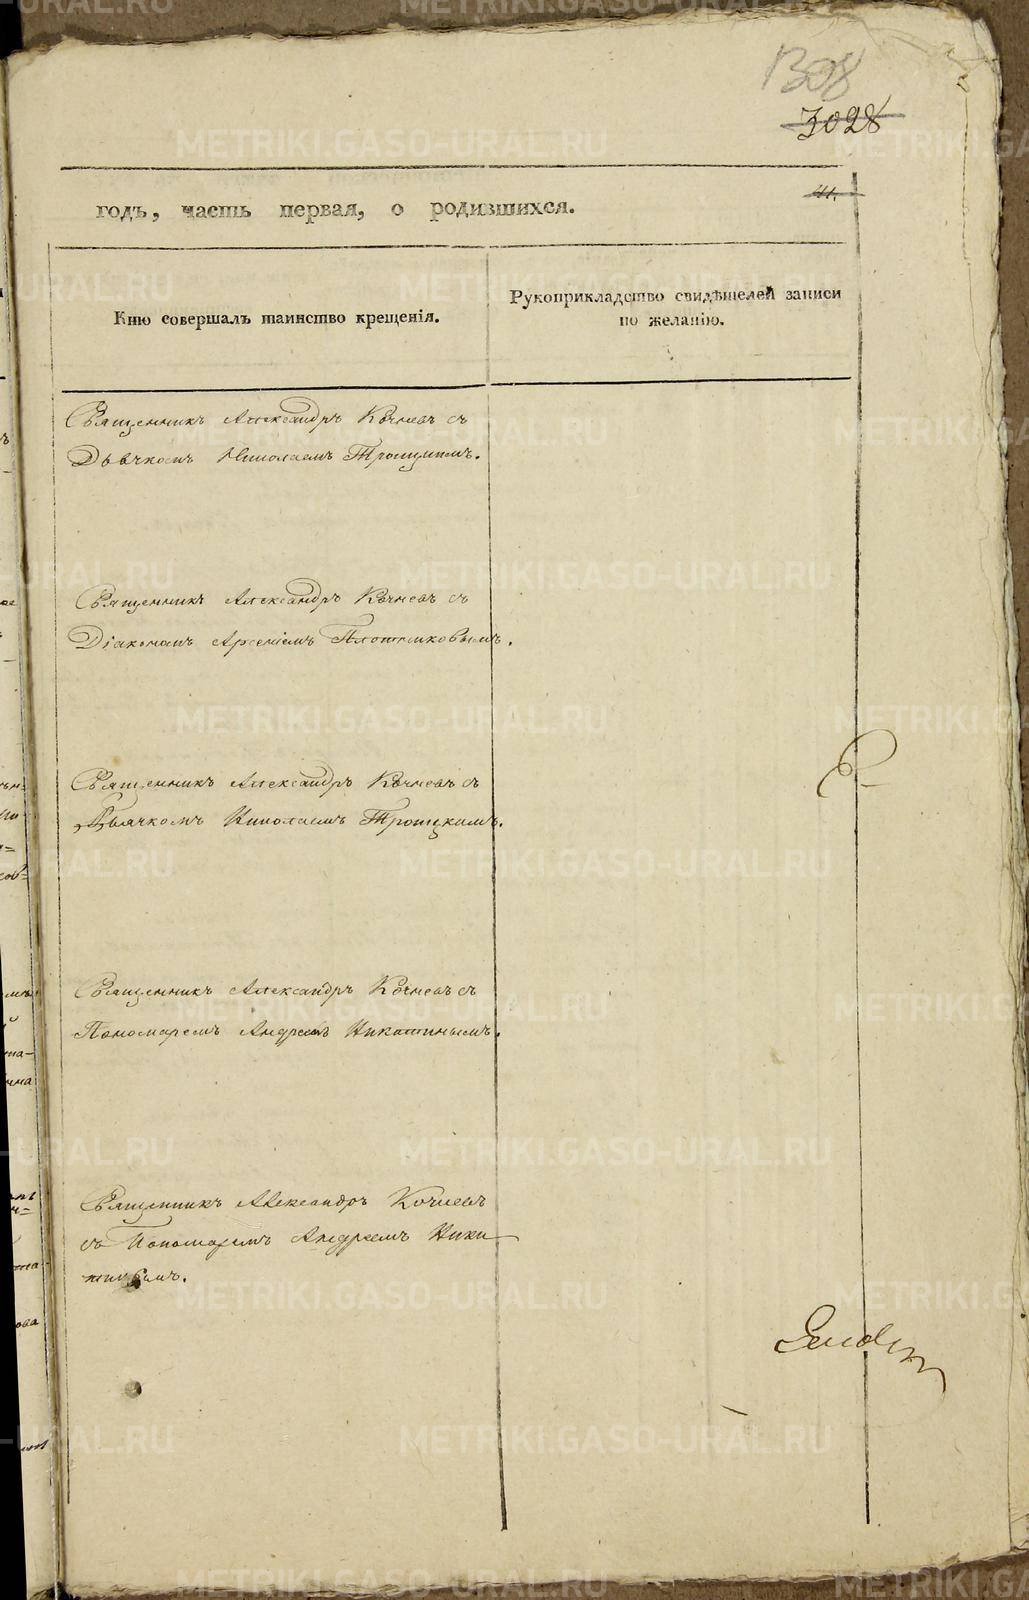 1308
3028
41.
годъ, часть первая, о родившихся.
Кто совершалъ таинство крещенія.
Рукоприкладство свидѣтелей записи
по желанію.
Священникъ Александръ Кочневъ съ
Дьячкомъ Николаемъ Троицкимъ.
Священникъ Александръ Кочневъ съ
Діакономъ Арсеніемъ Плотниковымъ.
Священникъ Александръ Кочневъ съ
Дьячкомъ Николаемъ Троицкимъ.
Священникъ Александръ Кочневъ съ
Пономаремъ Андреемъ Никитинымъ.
Священникъ Александръ Кочневъ
съ Пономаремъ Андреемъ Ники
тинымъ.
METRIKI.GASO-URAL.RU